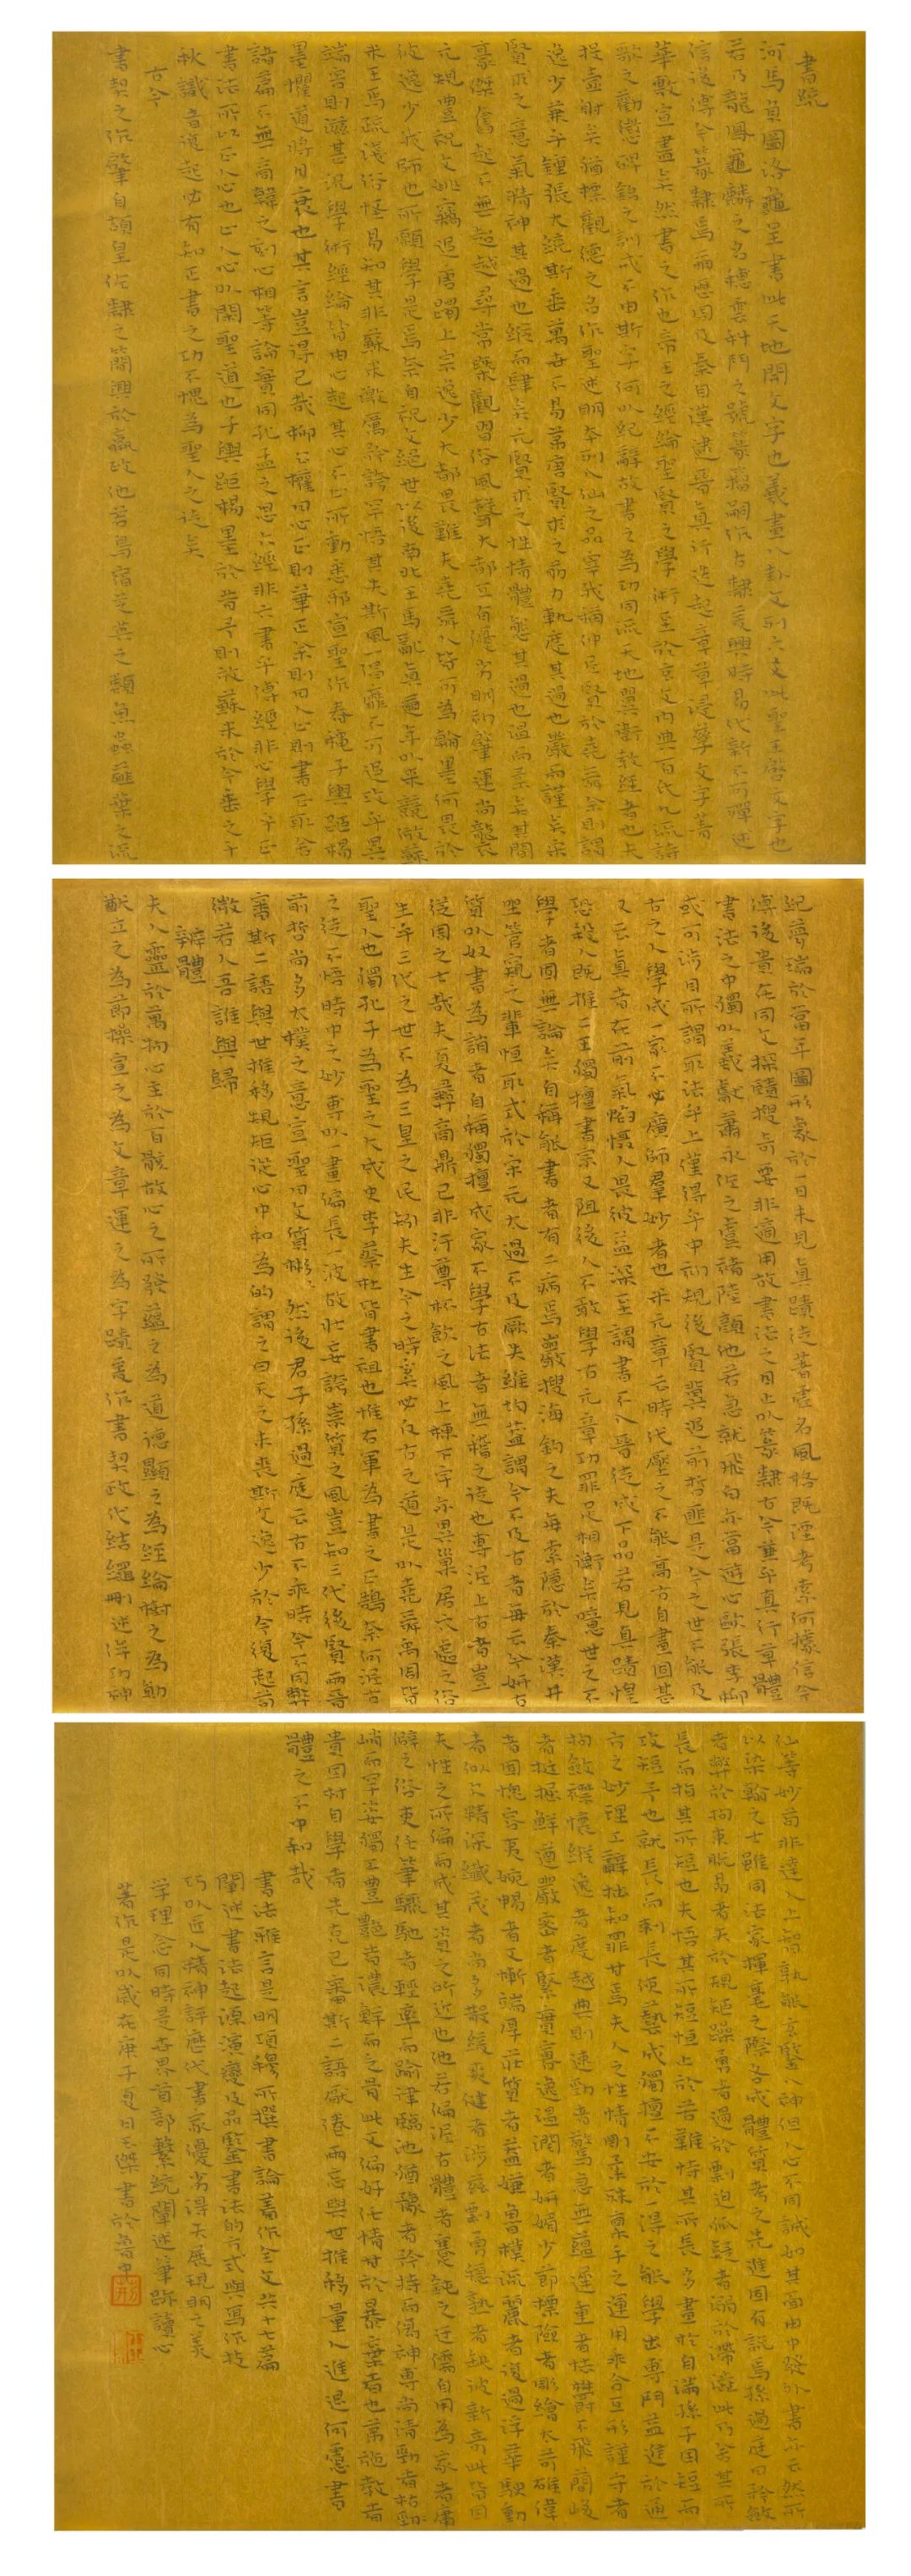 書統
河馬負圖洛龜呈書此天地開文字也羲畫八卦文列六爻此聖王啓文字也
若乃龍鳳龜麟之名穗雲科斗之號篆籀嗣作古隸爰興時易代新不可殫述
信後傳今篆隸焉爾歷周及秦自漢逮晉真行迭起章草浸孳文字菁
華敷宣盡矣然書之作也帝王之經綸聖賢之學術至於玄文內典百代九流詩
歌之勸懲碑銘之訓戒不由斯字何以紀辭故書之為功同流天地翼衛教經者也夫
投壺射矣猶標觀德之名作聖述明本列入仙之品宰我稱仰尼賢於堯舜余則謂
逸少兼乎鍾張大統斯垂萬世不易第唐賢求之筋力軌度其過也嚴而謹矣宋
賢求之意氣精神其過也縱而肆矣元賢求之性情體態其過也溫而柔矣其間
豪傑奮起不無超越尋常槩觀習俗風聲大都互有優劣明初肇運尚襲
元規豐祝文姚竊追唐躅上宗逸少大都畏難夫堯舜人皆可為翰墨何畏於
彼逸少我師也所願學是焉奈自祝文絕世以後南北王馬亂真邇年以來競倣蘇
米王馬疏淺俗怪易知其非蘇米激厲矜誇罕悟其失斯風一倡靡不可追攻乎異
端害則滋甚況學術經綸皆由心起其心不正所動悉邪宣聖作春秋子輿距楊
墨懼道將日衰也其言豈得已哉柳公權曰心正則筆正余則曰人正則書正取舍
諸篇不無商韓之刻心相等論實同孔孟之思六經非六書乎傳經非心學乎正
書法所以正人心也正人心以閑聖道也子輿距楊墨於昔予則放蘇米於今垂之千
秋識者復起必有知正書之功不愧為聖人之徒矣
古今
書契之作肇自頡皇佐隸之簡興於嬴政他若鳥宿芝英之類魚蟲薤葉之流
紀夢瑞於當年圖形象於一日未見真蹟徒著虛名風格既湮考索何據信今
傳後責在同文探賾搜奇要非適用故書法之目止以篆隸古今兼乎真行草體
書法之中獨以羲獻蕭永佐之虞褚陸顏他若急就飛白亦當遊心歐張李柳
或可涉目所謂取法乎上僅得乎中初規後賢冀追前哲匪是今之世不能及
古之人學成一家不必廣師羣妙者也米元章云時代壓之不能高古自畫固甚
又云真者在前氣焰懾人畏彼益深至謂書不入晉徒成下品若見真蹟惶
恐殺人既推二王獨擅書宗又阻後人不敢學古元章功罪足相衡矣噫世之不
學者固無論矣自稱能書者有二病焉巖搜海釣之夫每索隱於秦漢井
坐管窺之輩恒取式於宋元太過不及厥失維均蓋謂今不及古者每云今妍古
質以奴書為誚者自稱獨擅成家不學古法者無稽之徒也專泥上古者豈
從周之士哉夫夏彝商鼎已非汙尊坏飲之風上棟下宇亦異巢居穴處之俗
生乎三代之世不為三皇之民矧夫生今之時奚必反古之道是以堯舜禹周皆
聖人也獨孔子為聖之大成史李蔡杜皆書祖也惟右軍為書之正鵠奈何泥古
之徒不悟時中之妙專以一畫偏長一波故壯妄誇崇質之風豈知三代後賢兩晉
前哲尚多太樸之意宣聖曰文質彬彬然後君子孫過庭云古不乖時今不同弊
審斯二語與世推移規矩從心中和為的謂之曰天之未喪斯文逸少於今復起苟
微若人吾誰與歸
辨體
夫人靈於萬物心主於百骸故心之所發蘊之為道德顯之為經綸樹之為勳
猷立之為節操宣之為文章運之為字蹟爰作書契政代結繩刪述侔功神
仙等妙苟非達人上智孰能玄鑒入神但人心不同誠如其面由中發外書亦云然所
以染翰之士雖同法家揮毫之際各成體質考之先進固有說焉孫過庭曰矜斂
者弊於拘束脫易者失於規矩躁勇者過於剽迫狐疑者溺於滯澀此乃舍其所
長而指其所短也夫悟其所短恒止於苦難恃其所長多畫於自滿孫子因短而
攻短予也就長而刺長使藝成獨擅不安於一得之能學出專門益進於通
方之妙理工辭拙知罪甘焉夫人之性情剛柔殊稟手之運用乖合互形謹守者
拘斂襟懷縱逸者度越典則速勁者驚急無蘊遲重者怯鬱不飛簡峻
者挺掘鮮遒嚴密者緊實寡逸溫潤者妍媚少節標險者雕繪太苛雄偉
者固愧容夷婉暢者又慚端厚莊質者蓋嫌魯樸流麗者復過浮華駛動
者似欠精深纖茂者尚多散緩爽健者涉茲剽勇穩熟者缺彼新奇此皆因
夫性之所偏而成其資之所近也他若偏泥古體者蹇鈍之迂儒自用為家者庸
僻之俗吏任筆驟馳者輕率而踰律臨池猶豫者矜持而傷神專尚清勁者枯勁
峭而罕姿獨工豐艷者濃鮮而乏骨此又偏好任情甘於暴棄者也第施教者
貴因材自學者先克己審斯二語厭倦兩忘與世推移量人進退何慮書
體之不中和哉
書法雅言是明項穆所撰書論著作全文共十七篇
闡述書法起源演變及品鑒書法的方式與寫作技
巧以匠人精神評歷代書家優劣得失展現明之美
学理念同時是世界首部繫統闡述筆跡讀心
著作是以歲在庚子夏日玉傑書於魯中